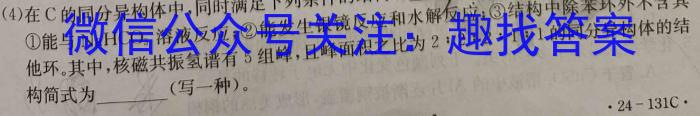 (4)在C的同分异构体中,同时满足下列条件的
①能与 溶液反应;②能发生银镜反应和水解反应;③结构中除苯环外不含其
他环。其中,核磁共振氢谱有5组峰,且峰面积之比为2: 1的同分异构体的结
构简式为 (写一种)。
微信公众号关注:趣找答案
·24-131C·